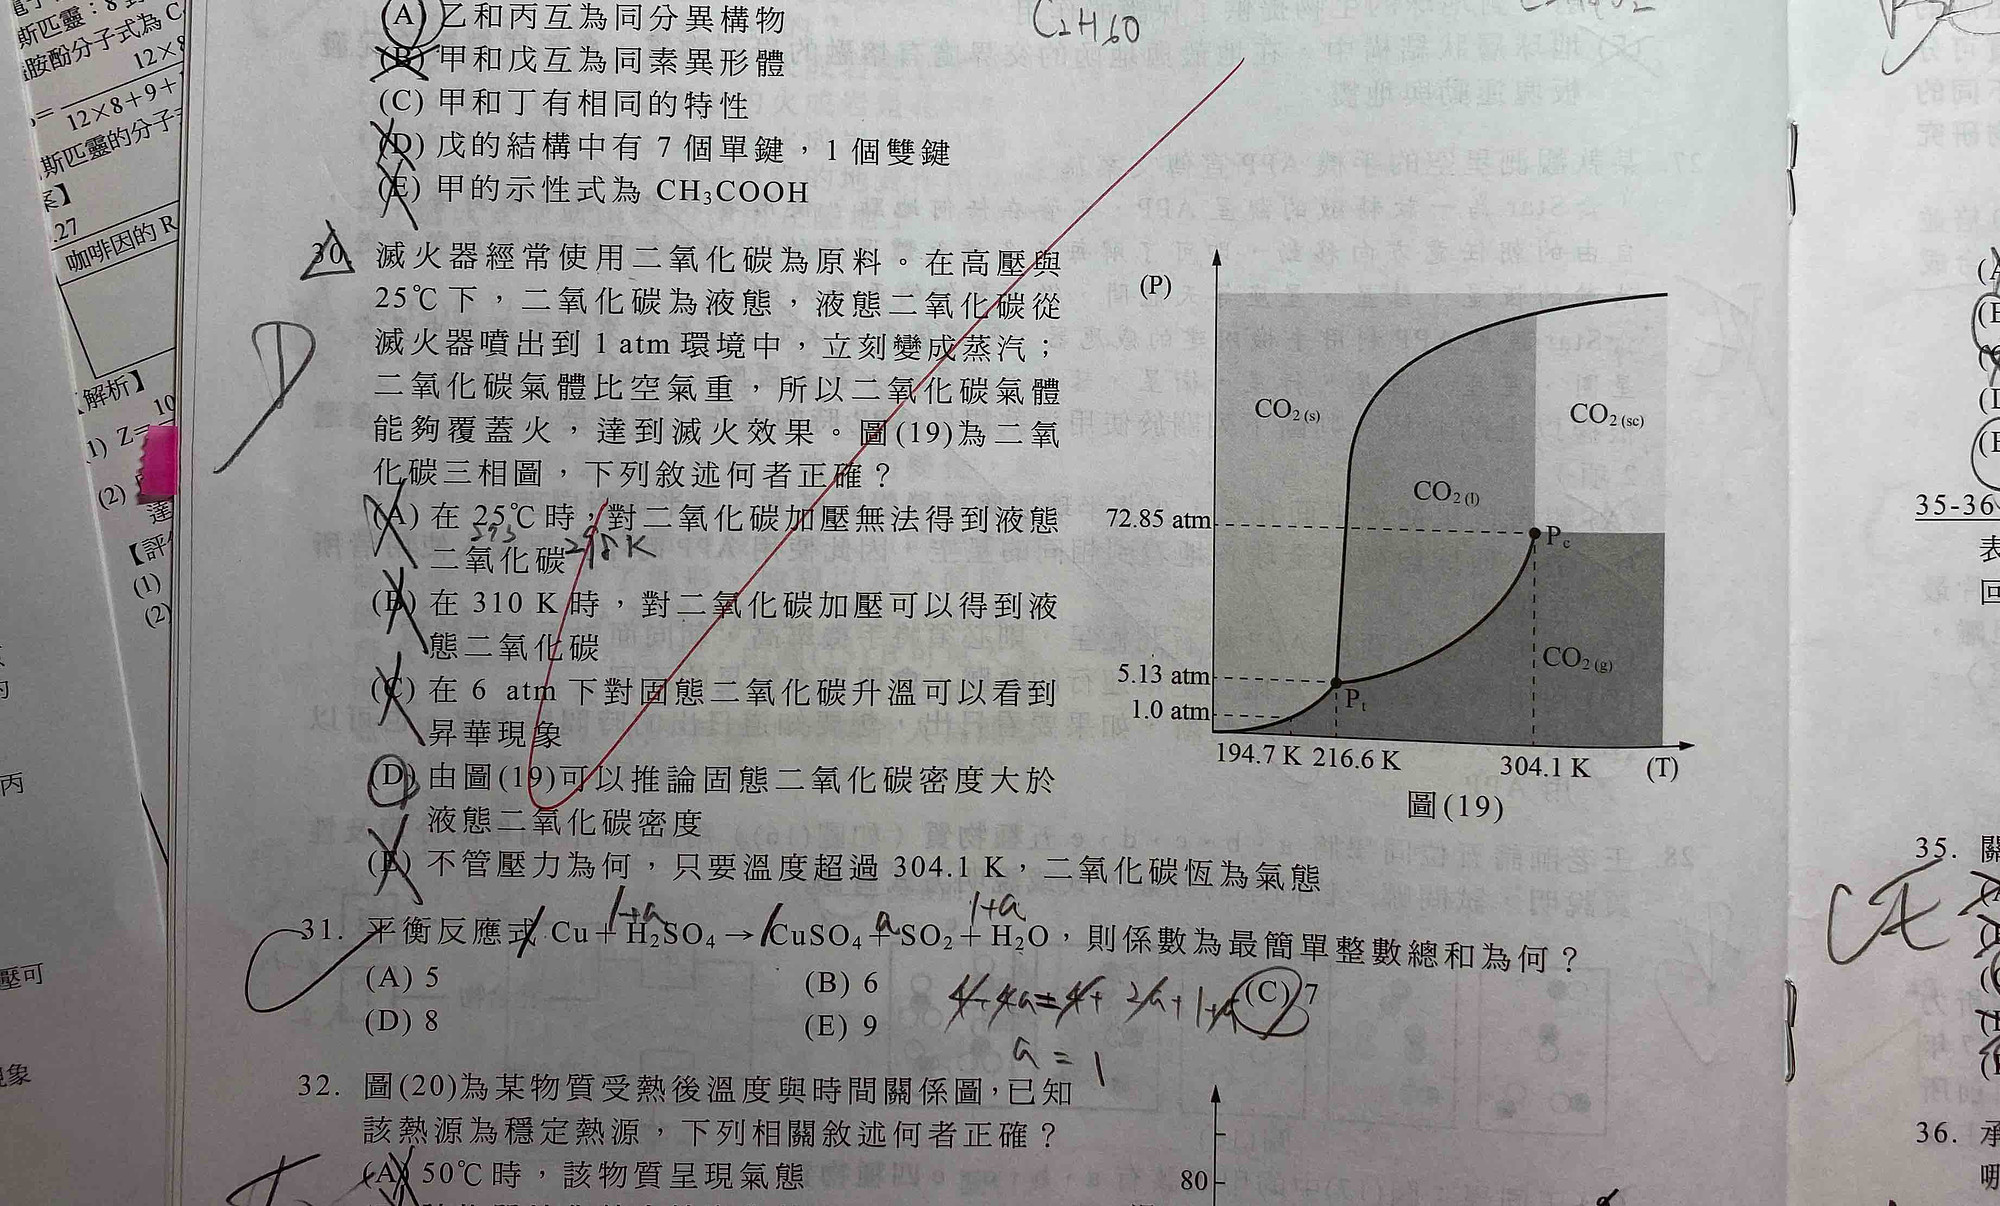 斯匹靈：8
胺酚分子式為 C
12×8
12×8+9+
斯匹靈的分子
案】
.27
咖啡因的 R
【解析】
10
(1) Z=
(2)
達
【評
(1)
(2)
丙
壓可
現象
(A) 乙和丙互為同分異構物
C₂H₆O
(B) 甲和戊互為同素異形體
(C) 甲和丁有相同的特性
(D) 戊的結構中有 7 個單鍵，1 個雙鍵
(E) 甲的示性式為 CH₃COOH
30. 滅火器經常使用二氧化碳為原料。在高壓與
25℃下，二氧化碳為液態，液態二氧化碳從
滅火器噴出到 1 atm 環境中，立刻變成蒸汽；
二氧化碳氣體比空氣重，所以二氧化碳氣體
能夠覆蓋火，達到滅火效果。圖(19)為二氧
化碳三相圖，下列敘述何者正確？
D
(A) 在 25℃時，對二氧化碳加壓無法得到液態
二氧化碳
298K
(B) 在 310 K 時，對二氧化碳加壓可以得到液
態二氧化碳
(C) 在 6 atm 下對固態二氧化碳升溫可以看到
昇華現象
(D) 由圖(19)可以推論固態二氧化碳密度大於
液態二氧化碳密度
(E) 不管壓力為何，只要溫度超過 304.1 K，二氧化碳恆為氣態
(P)
CO₂(s)
CO₂(sc)
CO₂(l)
72.85 atm
Pc
CO₂(g)
5.13 atm
Pt
1.0 atm
194.7 K 216.6 K 304.1 K (T)
圖(19)
1 1+a 1 a 1+a
31. 平衡反應式 Cu＋H₂SO₄→CuSO₄＋SO₂＋H₂O，則係數為最簡單整數總和為何？
C
(A) 5 (B) 6 (C) 7
4+4a=4+2a+1+a
(D) 8 (E) 9
a=1
32. 圖(20)為某物質受熱後溫度與時間關係圖，已知
該熱源為穩定熱源，下列相關敘述何者正確？
(A) 50℃時，該物質呈現氣態
80
35-36
35. 關
CE
36. 承
哪